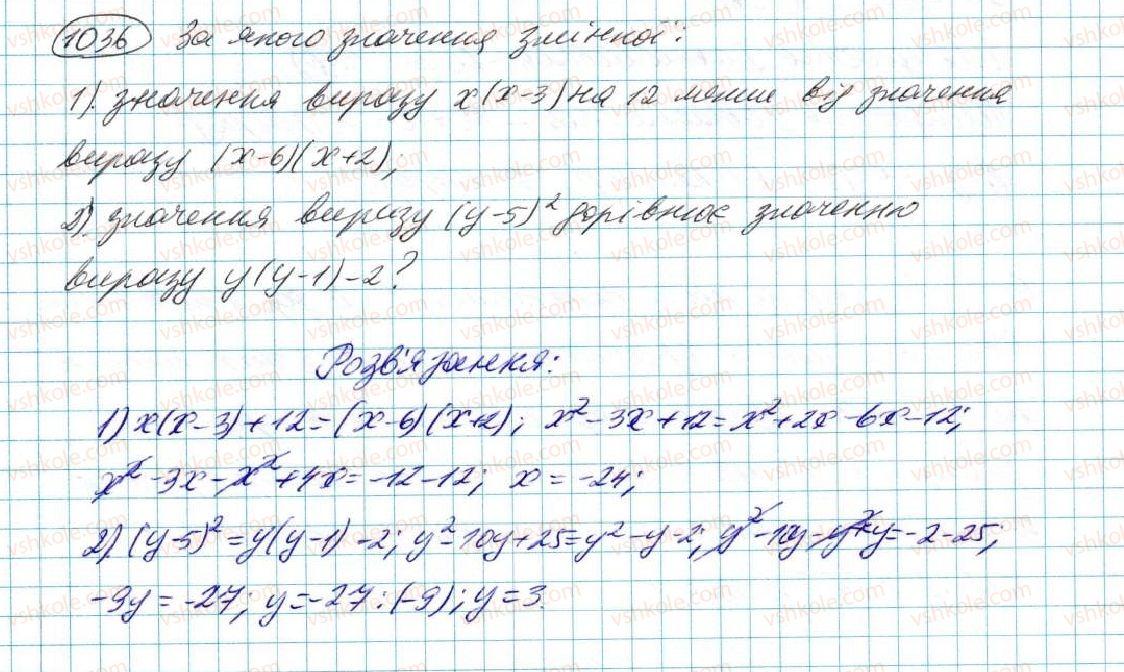 1036 За якого значення змінної:
1) значення виразу x(x-3) на 12 менше від значення
виразу (x-6)(x+2);
2) значення виразу (y-5)² дорівнює значенню
виразу y(y-1)-2?
Розв'язання:
1) x(x-3)+12=(x-6)(x+2); x²-3x+12=x²+2x-6x-12;
x²-3x-x²+4x=-12-12; x=-24;
2) (y-5)²=y(y-1)-2; y²-10y+25=y²-y-2; y²-10y-y²+y=-2-25;
-9y=-27; y=-27:(-9); y=3.